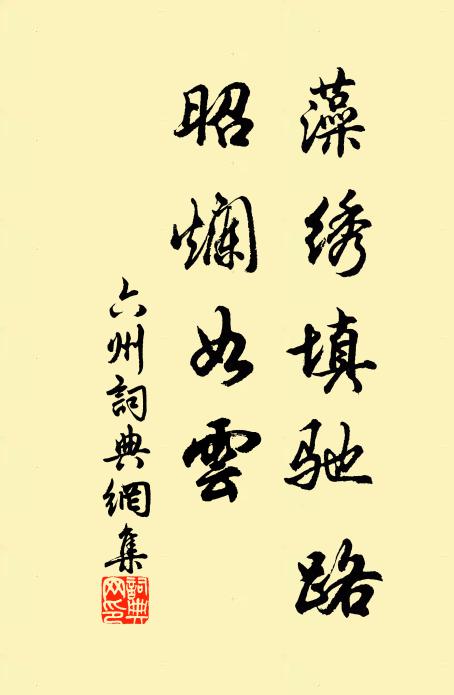 藻绣填驰路
昭爛如雲
六州詞典網集
詞典網印